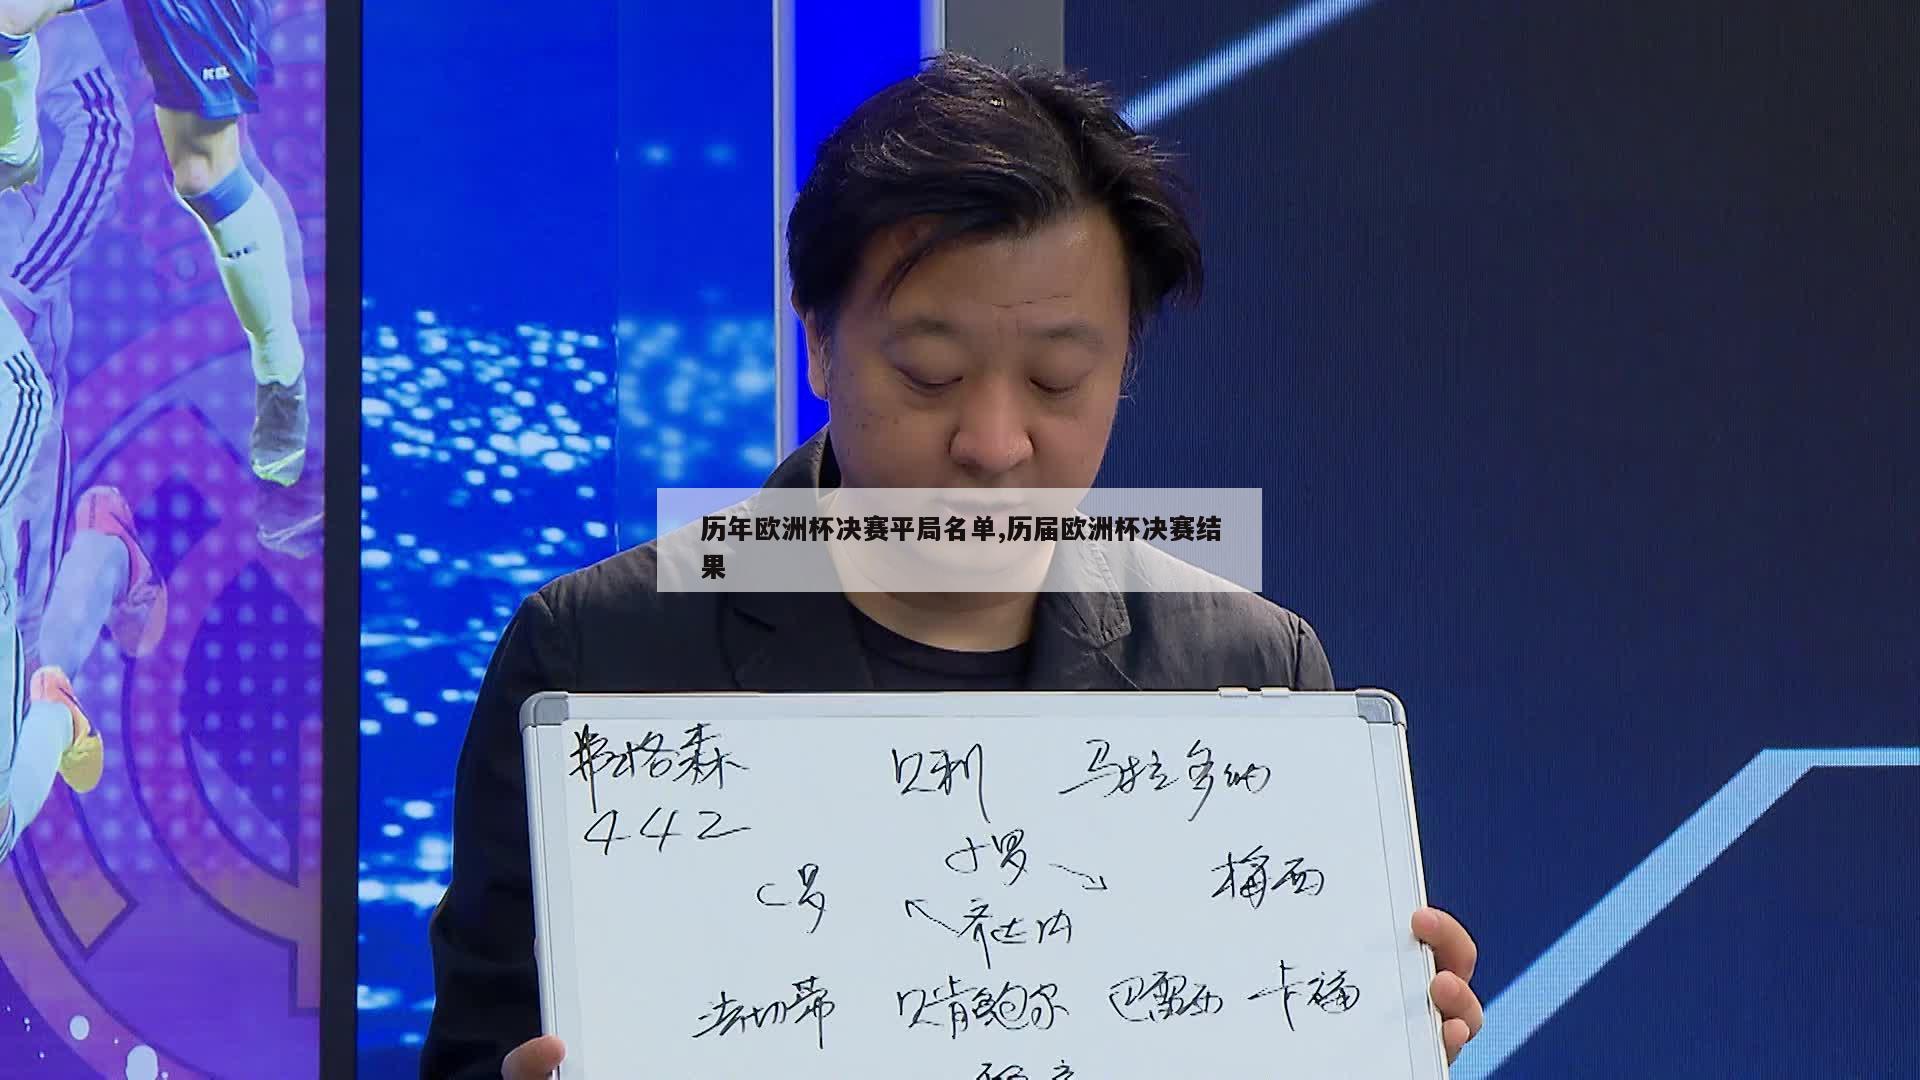 历年欧洲杯决赛平局名单,历届欧洲杯决赛结
果
弗格森 贝利 马拉多纳
442
小罗
C罗 梅西
齐达内
法切蒂 贝肯鲍尔 巴雷西 卡福